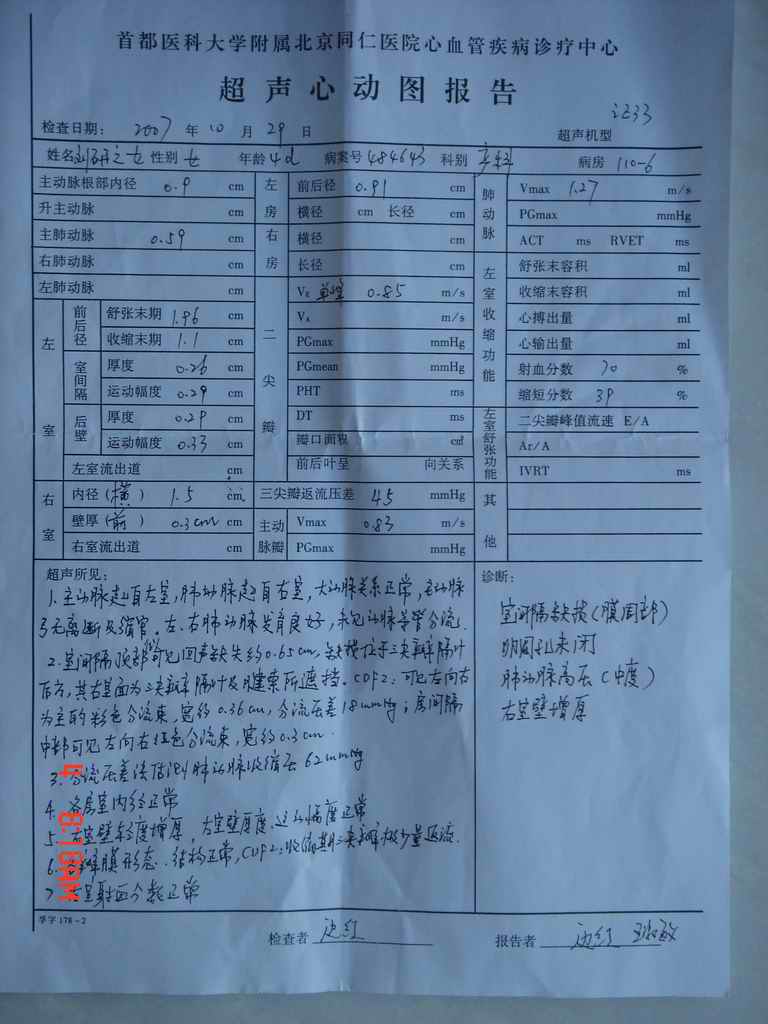 首都医科大学附属北京同仁医院心血管疾病诊疗中心
超声心动图报告
iE33
检查日期: 2007 年 10 月 29 日 超声机型
姓名 之女 性别 女 年龄 4d 病案号 484643 科别 产科 病房 110-6
主动脉根部内径 0.9 cm
升主动脉 cm
主肺动脉 0.59 cm
右肺动脉 cm
左肺动脉 cm
左房 前后径 0.91 cm
横径 cm 长径 cm
右房 横径 cm
长径 cm
肺动脉 Vmax 1.27 m/s
PGmax mmHg
ACT ms RVET ms
左室 前后径 舒张末期 1.96 cm
收缩末期 1.1 cm
室间隔 厚度 0.26 cm
运动幅度 0.29 cm
后壁 厚度 0.29 cm
运动幅度 0.33 cm
左室流出道 cm
右室 内径(横) 1.5 cm
壁厚(前) 0.3cm cm
右室流出道 cm
二尖瓣 VE 单峰 0.85 m/s
VA m/s
PGmax mmHg
PGmean mmHg
PHT ms
DT ms
瓣口面积 cm²
前后叶呈 向关系
三尖瓣返流压差 45 mmHg
主动脉瓣 Vmax 0.83 m/s
PGmax mmHg
左室收缩功能 舒张末容积 ml
收缩末容积 ml
心搏出量 ml
心输出量 ml
射血分数 70 %
缩短分数 39 %
左室舒张功能 二尖瓣峰值流速 E/A
Ar/A
IVRT ms
其他
超声所见:
1. 主动脉起自左室,肺动脉起自右室,大动脉关系正常,主动脉
弓无离断及缩窄。左、右肺动脉发育良好,未见动脉导管分流.
2. 室间隔顶部可见回声缺失约0.65cm,缺损位于三尖瓣隔叶
后方,其右室面为三尖瓣隔叶及腱索所遮挡。CDFI:可见左向右
为主的彩色分流束,宽约0.36cm,分流压差18mmHg;房间隔
中部可见左向右红色分流束,宽约0.3cm.
3. 分流压差法估测肺动脉收缩压62mmHg
4. 各房室内径正常
5. 右室壁轻度增厚,左室壁厚度、运动幅度正常
6. 各瓣膜形态、结构正常,CDFI:收缩期三尖瓣极少量返流.
7. 左室射血分数正常
诊断:
室间隔缺损(膜周部)
卵圆孔未闭
肺动脉高压(中度)
右室壁增厚
4 8:18AM
华字178-2
检查者 边红
报告者 边红